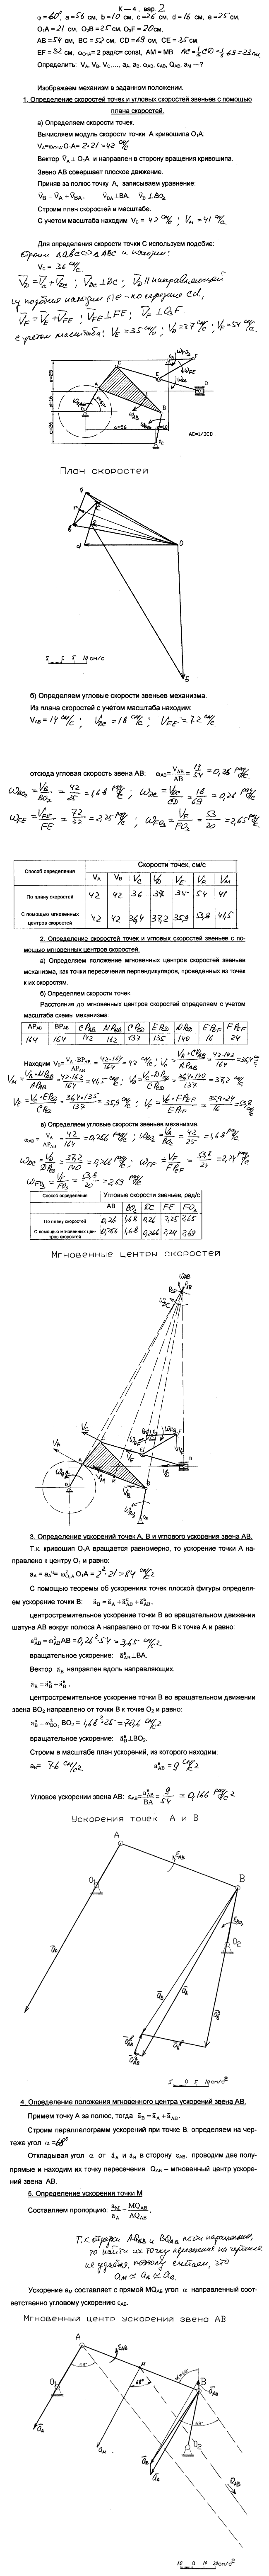 К – 4 , вар. 2
φ = 60°, a = 56 см, b = 10 см, c = 26 см, d = 16 см, e = 25 см,
O₁A = 21 см, O₂B = 25 см, O₃F = 20 см,
AB = 54 см, BC = 52 см, CD = 69 см, CE = 35 см,
EF = 32 см, ωO1A = 2 рад/с = const, AM = MB. AC = 1/3 CD = 1/3 · 69 = 23 см
Определить: VA, VB, VC,..., aA, aB, αAB, εAB, QAB, aM —?
Изображаем механизм в заданном положении.
1. Определение скоростей точек и угловых скоростей звеньев с помощью
плана скоростей.
а) Определяем скорости точек.
Вычисляем модуль скорости точки А кривошипа O₁A:
VA = ωO1A · O₁A = 2 · 21 = 42 см/с
Вектор V̄A ⊥ O₁A и направлен в сторону вращения кривошипа.
Звено АВ совершает плоское движение.
Приняв за полюс точку А, записываем уравнение:
V̄B = V̄A + V̄BA, V̄BA ⊥ BA, V̄B ⊥ BO₂
Строим план скоростей в масштабе.
С учетом масштаба находим VB = 42 см/с ; VM = 41 см/с
Для определения скорости точки С используем подобие:
Строим Δabc ∽ ΔABC и находим:
VC = 36 см/с
V̄D = V̄C + V̄DC ; V̄DC ⊥ DC ; V̄D II направляющей
из подобия находим т. e – по середине cd,
V̄F = V̄E + V̄FE ; V̄FE ⊥ FE ; V̄F ⊥ O₃F
с учетом масштаба: VE = 35 см/с ; VD = 37 см/с ; VF = 54 см/с.
AC=1/3CD
План скоростей
5 0 5 10 см/с
б) Определяем угловые скорости звеньев механизма.
Из плана скоростей с учетом масштаба находим:
VAB = 14 см/с ; VDC = 18 см/с ; VFE = 72 см/с
отсюда угловая скорость звена АВ: ωAB = VAB/AB = 14/54 = 0,26 рад/с
ωBO2 = VB/BO2 = 42/25 = 1,68 рад/с ; ωDC = VDC/CD = 18/69 = 0,26 рад/с
ωFE = VFE/FE = 72/32 = 2,25 рад/с ; ωFO3 = VF/FO3 = 53/20 = 2,65 рад/с
Способ определения Скорости точек, см/с
VA VB VC VD VE VF VM
По плану скоростей 42 42 36 37 35 54 41
С помощью мгновенных центров скоростей 42 42 36,4 37,2 35,9 53,8 41,5
2. Определение скоростей точек и угловых скоростей звеньев с по-
мощью мгновенных центров скоростей.
а) Определяем положение мгновенных центров скоростей звеньев
механизма, как точки пересечения перпендикуляров, проведенных из точек
к их скоростям.
б) Определяем скорости точек.
Расстояния до мгновенных центров скоростей определяем с учетом
масштаба схемы механизма:
APAB BPAB CPAB MPAB CPCD EPCD DPCD EPEF FPEF
164 164 142 162 137 135 140 16 24
Находим VB = VA · BPAB/APAB = 42·164/164 = 42 см/с ; VC = VA · CPAB/APAB = 42·142/164 = 36,4 см/с
VM = VA · MPAB/APAB = 42·162/164 = 41,5 см/с ; VD = VC · DPCD/CPCD = 36,4·140/137 = 37,2 см/с
VE = VC · EPCD/CPCD = 36,4·135/137 = 35,9 см/с ; VF = VE · FPEF/EPEF = 35,9·24/16 = 53,8 см/с
в) Определяем угловые скорости звеньев механизма.
ωAB = VA/APAB = 42/164 = 0,266 рад/с ; ωBO2 = VB/BO2 = 42/25 = 1,68 рад/с
ωDC = VD/DPCD = 37,2/140 = 0,266 рад/с ; ωFE = VF/FPEF = 53,8/24 = 2,24 рад/с
ωFO3 = VF/FO3 = 53,8/20 = 2,69 рад/с
Способ определения Угловые скорости звеньев, рад/с
AB BO₂ DC FE FO₃
По плану скоростей 0,26 1,68 0,26 2,25 2,65
С помощью мгновенных центров скоростей 0,266 1,68 0,266 2,24 2,69
Мгновенные центры скоростей
3. Определение ускорений точек А, В и углового ускорения звена АВ.
Т.к. кривошип O₁A вращается равномерно, то ускорение точки А на-
правлено к центру O₁ и равно:
aA = aAц = ω²O1A O₁A = 2² · 21 = 84 см/с2
С помощью теоремы об ускорениях точек плоской фигуры определя-
ем ускорение точки В: āB = āA + āцAB + āвAB,
центростремительное ускорение точки В во вращательном движении
шатуна АВ вокруг полюса А направлено от точки В к точке А и равно:
aцAB = ω²AB AB = 0,26² · 54 = 3,65 см/с2
вращательное ускорение: āвAB ⊥ BA.
Вектор āB направлен вдоль направляющих.
āB = āцB + āвB,
центростремительное ускорение точки В во вращательном движении
звена ВО₂ направлено от точки В к точке О₂ и равно:
aцB = ω²BO2 BO₂ = 1,68² · 25 = 70,6 см/с2
вращательное ускорение: āвB ⊥ BO₂.
Строим в масштабе план ускорений, из которого находим:
aB = 76 см/с2 aвAB = 9 см/с2
Угловое ускорении звена АВ: εAB = aвAB/BA = 9/54 = 0,166 рад/с2
Ускорения точек А и В
5 0 5 10 см/с²
4. Определение положения мгновенного центра ускорений звена АВ.
Примем точку А за полюс, тогда āB = āA + āAB.
Строим параллелограмм ускорений при точке В, определяем на чер-
теже угол α = 68°
Откладывая угол α от āA и āB в сторону εAB, проводим две полу-
прямые и находим их точку пересечения QAB – мгновенный центр ускоре-
ний звена АВ.
5. Определение ускорения точки М
Составляем пропорцию: aM/aA = MQAB/AQAB,
т.к. отрезки AQAB и BQAB почти параллельны,
то найти их точку пересечения на чертеже
не удается, поэтому считаем, что
aM ≈ aA ≈ aB.
Ускорение aM составляет с прямой MQAB угол α направленный соот-
ветственно угловому ускорению εAB.
Мгновенный центр ускорений звена АВ
10 0 10 20см/с²